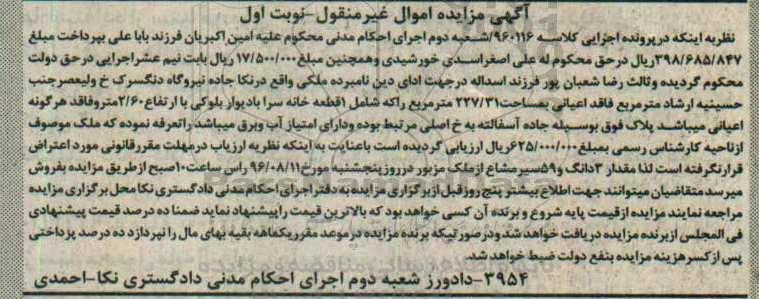 آگهی مزایده اموال غیرمنقول-نوبت اول
نظربه اینکه درپرونده اجرایی کلاسه ۹۶۰۱۱۶/شعبه دوم اجرای احکام مدنی محکوم علیه امین اکبریان فرزند بابا علی بپرداخت مبلغ
۳۹۸/۶۸۵/۸۴۷ریال درحق محکوم له علی اصغراسدی خورشیدی وهمچنین مبلغ۱۷/۵۰۰/۰۰۰ ریال بابت نیم عشراجرایی درحق دولت
محکوم گردیده وثالث رضا شعبان پور فرزند اسداله درجهت ادای دین نامبرده ملکی واقع درنکا جاده نیروگاه دنگسرک خ ولیعصرجنب
حسینیه ارشاد مترمربع فاقد اعیانی بمساحت۲۲۷/۳۱ مترمربع راکه شامل ۱قطعه خانه سرا بادیوار بلوکی با ارتفاع۲/۶۰متروفاقد هرگونه
اعیانی میباشد پلاک فوق بوسیله جاده آسفالته به خ اصلی مرتبط بوده ودارای امتیاز آب وبرق میباشد راتعرفه نموده که ملک موصوف
ازناحیه کارشناس رسمی بمبلغ۶۲۵/۰۰۰/۰۰۰ریال ارزیابی گردیده است باعنایت به اینکه نظریه ارزیاب درمهلت مقررقانونی مورد اعتراض
قرارنگرفته است لذا مقدار ۳دانگ و۵۹سیرمشاع ازملک مزبور درروزپنجشنبه مورخ۹۶/۰۸/۱۱ راس ساعت۱۰صبح ازطریق مزایده بفروش
میرسدمتقاضیان میتوانند جهت اطلاع بیشتر پنج روزقبل ازبرگزاری مزایده به دفتراجرای احکام مدنی دادگستری نکا محل برگزاری مزایده
مراجعه نمایند مزایده ازقیمت پایه شروع وبرنده آن کسی خواهد بود که بالاترین قیمت راپیشنهاد نماید ضمنا ده درصد قیمت پیشنهادی
فی المجلس ازبرنده مزایده دریافت خواهد شد ودر صورتیکه برنده مزایده درموعد مقرریکماهه بقیه بهای مال را نپردازد ده درصد پرداختی
پس ازکسرهزینه مزایده بنفع دولت ضبط خواهد شد.
۳۹۵۴-دادورز شعبه دوم اجرای احکام مدنی دادگستری نکا-احمدی